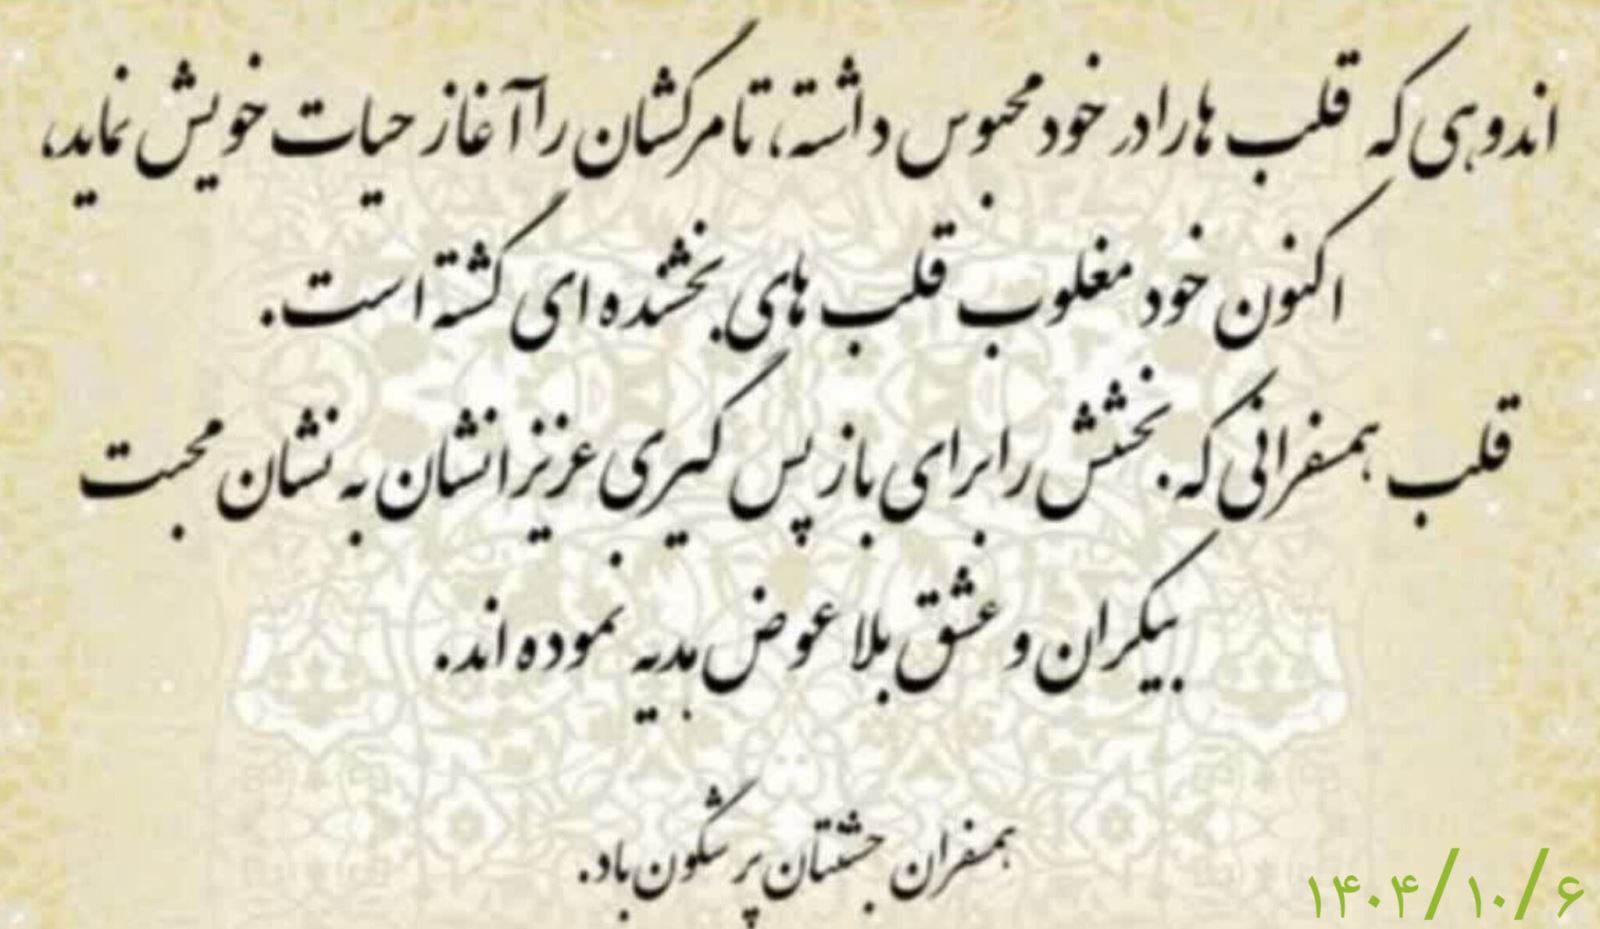 اندوهی که قلب ها را در خود محبوس داشته، تا مرگشان را آغاز حیات خویش نماید،
اکنون خود مغلوب قلب های بخشنده ای گشته است.
قلب همسفرانی که بخشش را برای باز پس گیری عزیزانشان به نشان محبت
بیکران و عشق بلا عوض هدیه نموده اند.
همسفران جشنتان پر شگون باد.
۱۴۰۴/۱۰/۶